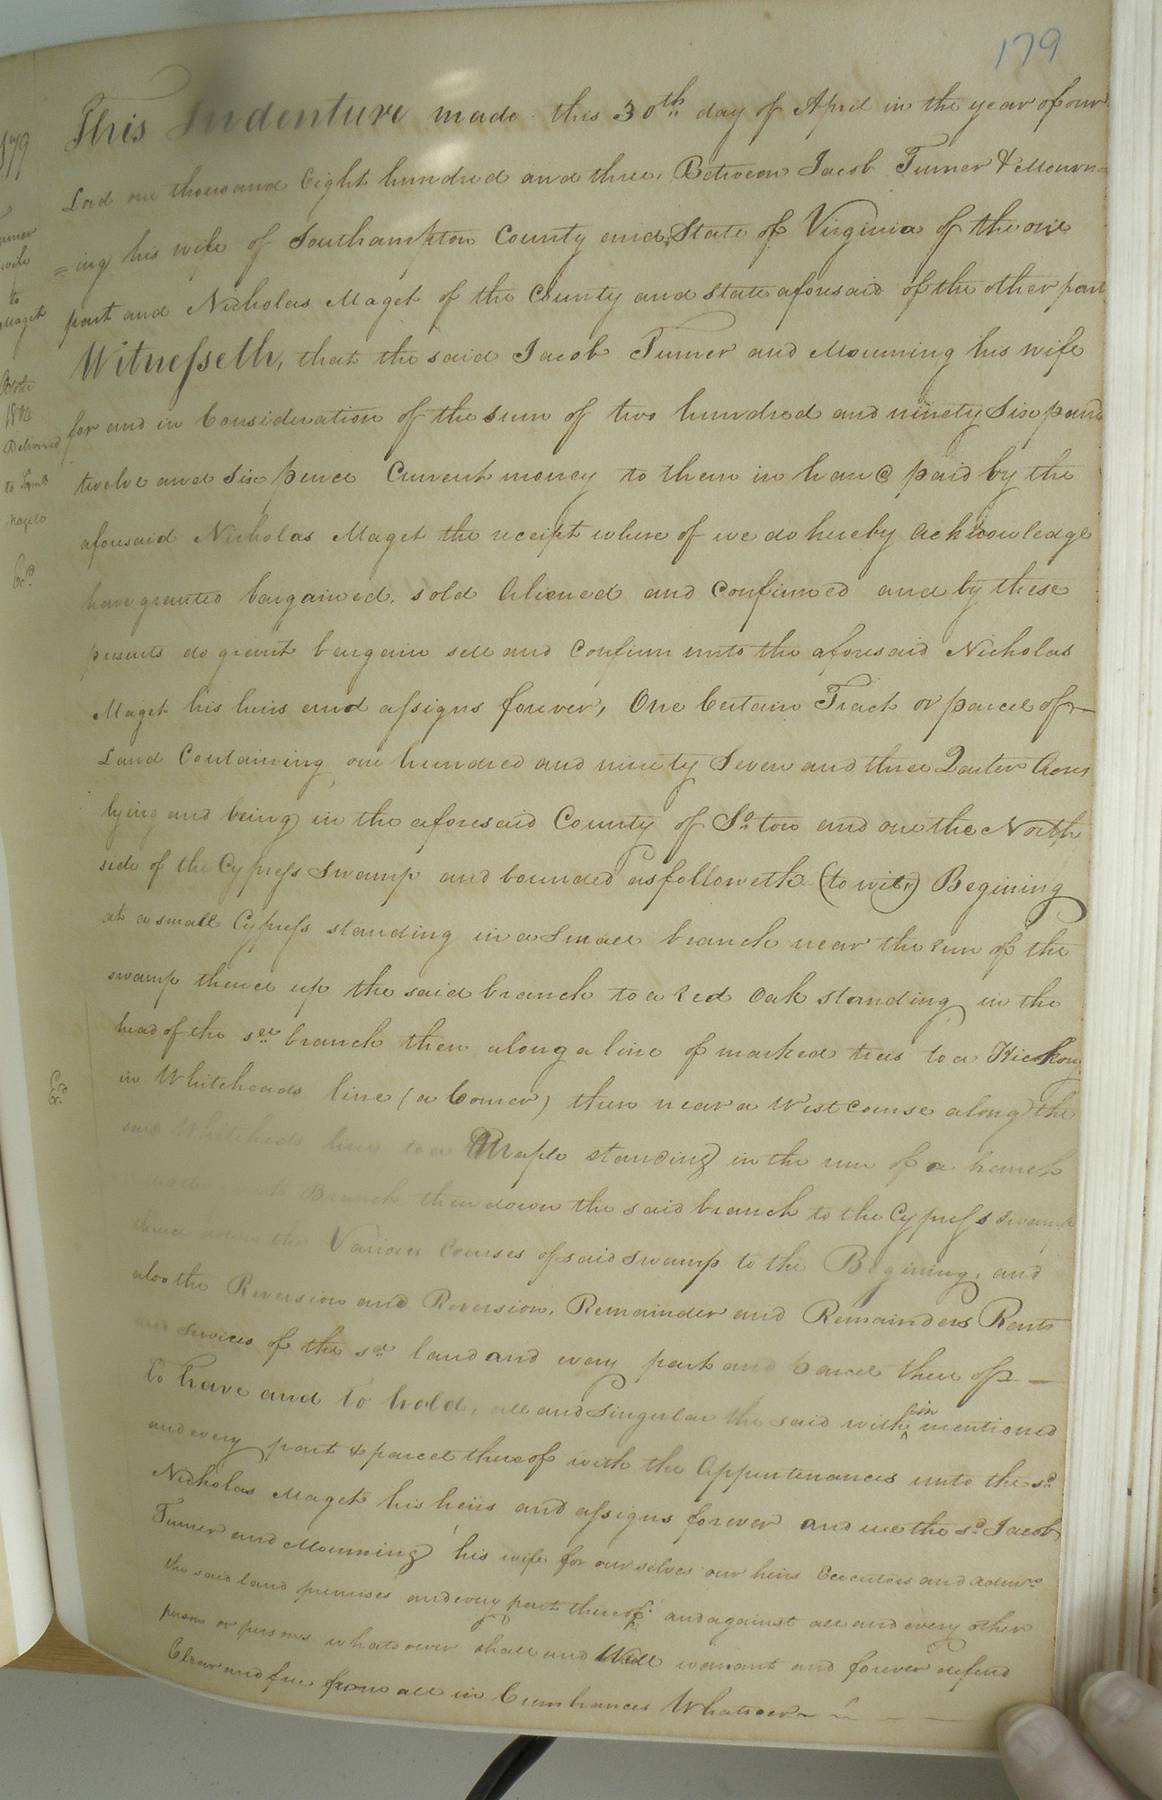 179
This Indenture made this 30th day of April in the year of our
Lord one thousand Eight hundred and three, Between Jacob Turner & Mourn=
=ing his wife of Southampton County and State of Virginia of the one
part and Nicholas Maget of the County and State aforesaid of the other part
Witnesseth, that the said Jacob Turner and Mourning his wife
for and in Consideration of the sum of two hundred and ninety Six pound
twelve and Six pence Current money to them in hand paid by the
aforesaid Nicholas Maget the receipt where of we do hereby acknowledge
have granted bargained, sold Aliened and Confirmed and by these
presents do grant bargain sell and Confirm unto the aforesaid Nicholas
Maget his heirs and assigns forever, One Certain Tract or parcel of
Land Containing one hundred and ninety Seven and three Quater Acres
lying and being in the aforesaid County of So. ton and one the North
side of the Cypress Swamp and bounded as followeth (to wit,) Begining
at a small Cypress standing in a Small branch near the run of the
swamp thence up the said branch to a Red Oak standing in the
head of the sd. branch then along a line of marked trees to a Hickory
in Whiteheads line (a Corner) then near a West course along the
said Whiteheds line to a Maple standing in the run of a branch
Branch then down the said branch to the Cypress Swamp
thence down the Various Courses of said swamp to the Begining, and
also the Reversion and Reversion, Remainder and Remainders Rents
and services of the sd land and every part and parcel there of —
To have and To hold, all and Singular the said with^in mentioned
and every part & parcel thereof with the Appurtenances unto the sd
Nicholas Maget his heirs and assigns forever and we the sd. Jacob
Turner and Mourning his wife for our selves our heirs Executors and admrs
the said land premises and every part thereof and against all and every other
person or persons whatsoever shall and Will warrant and forever defend
Clear and free from all in Cumbrances Whatsoever
wife
to
Maget
Delivered